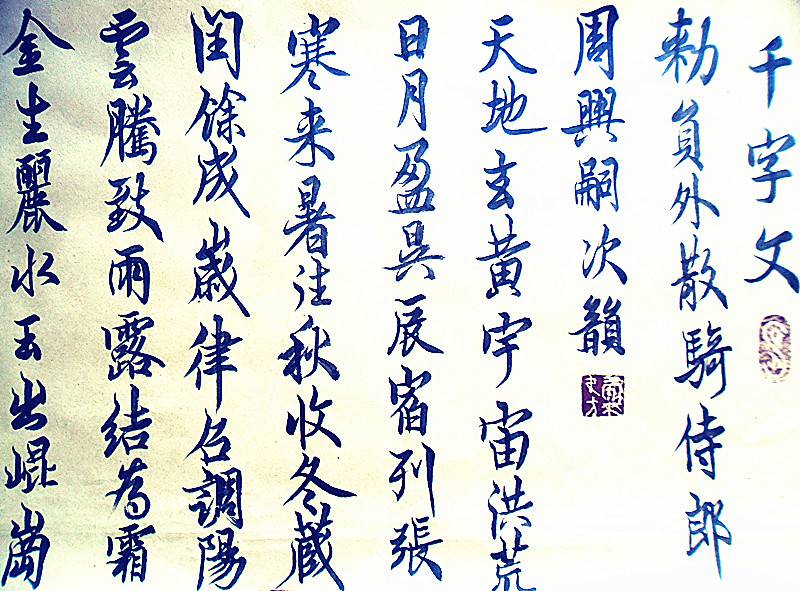 千字文
勅員外散騎侍郎
周興嗣次韻
天地玄黃宇宙洪荒
日月盈昃辰宿列張
寒来暑往秋收冬藏
閏餘成歲律召調陽
雲騰致雨露結為霜
金生麗水玉出崐崗